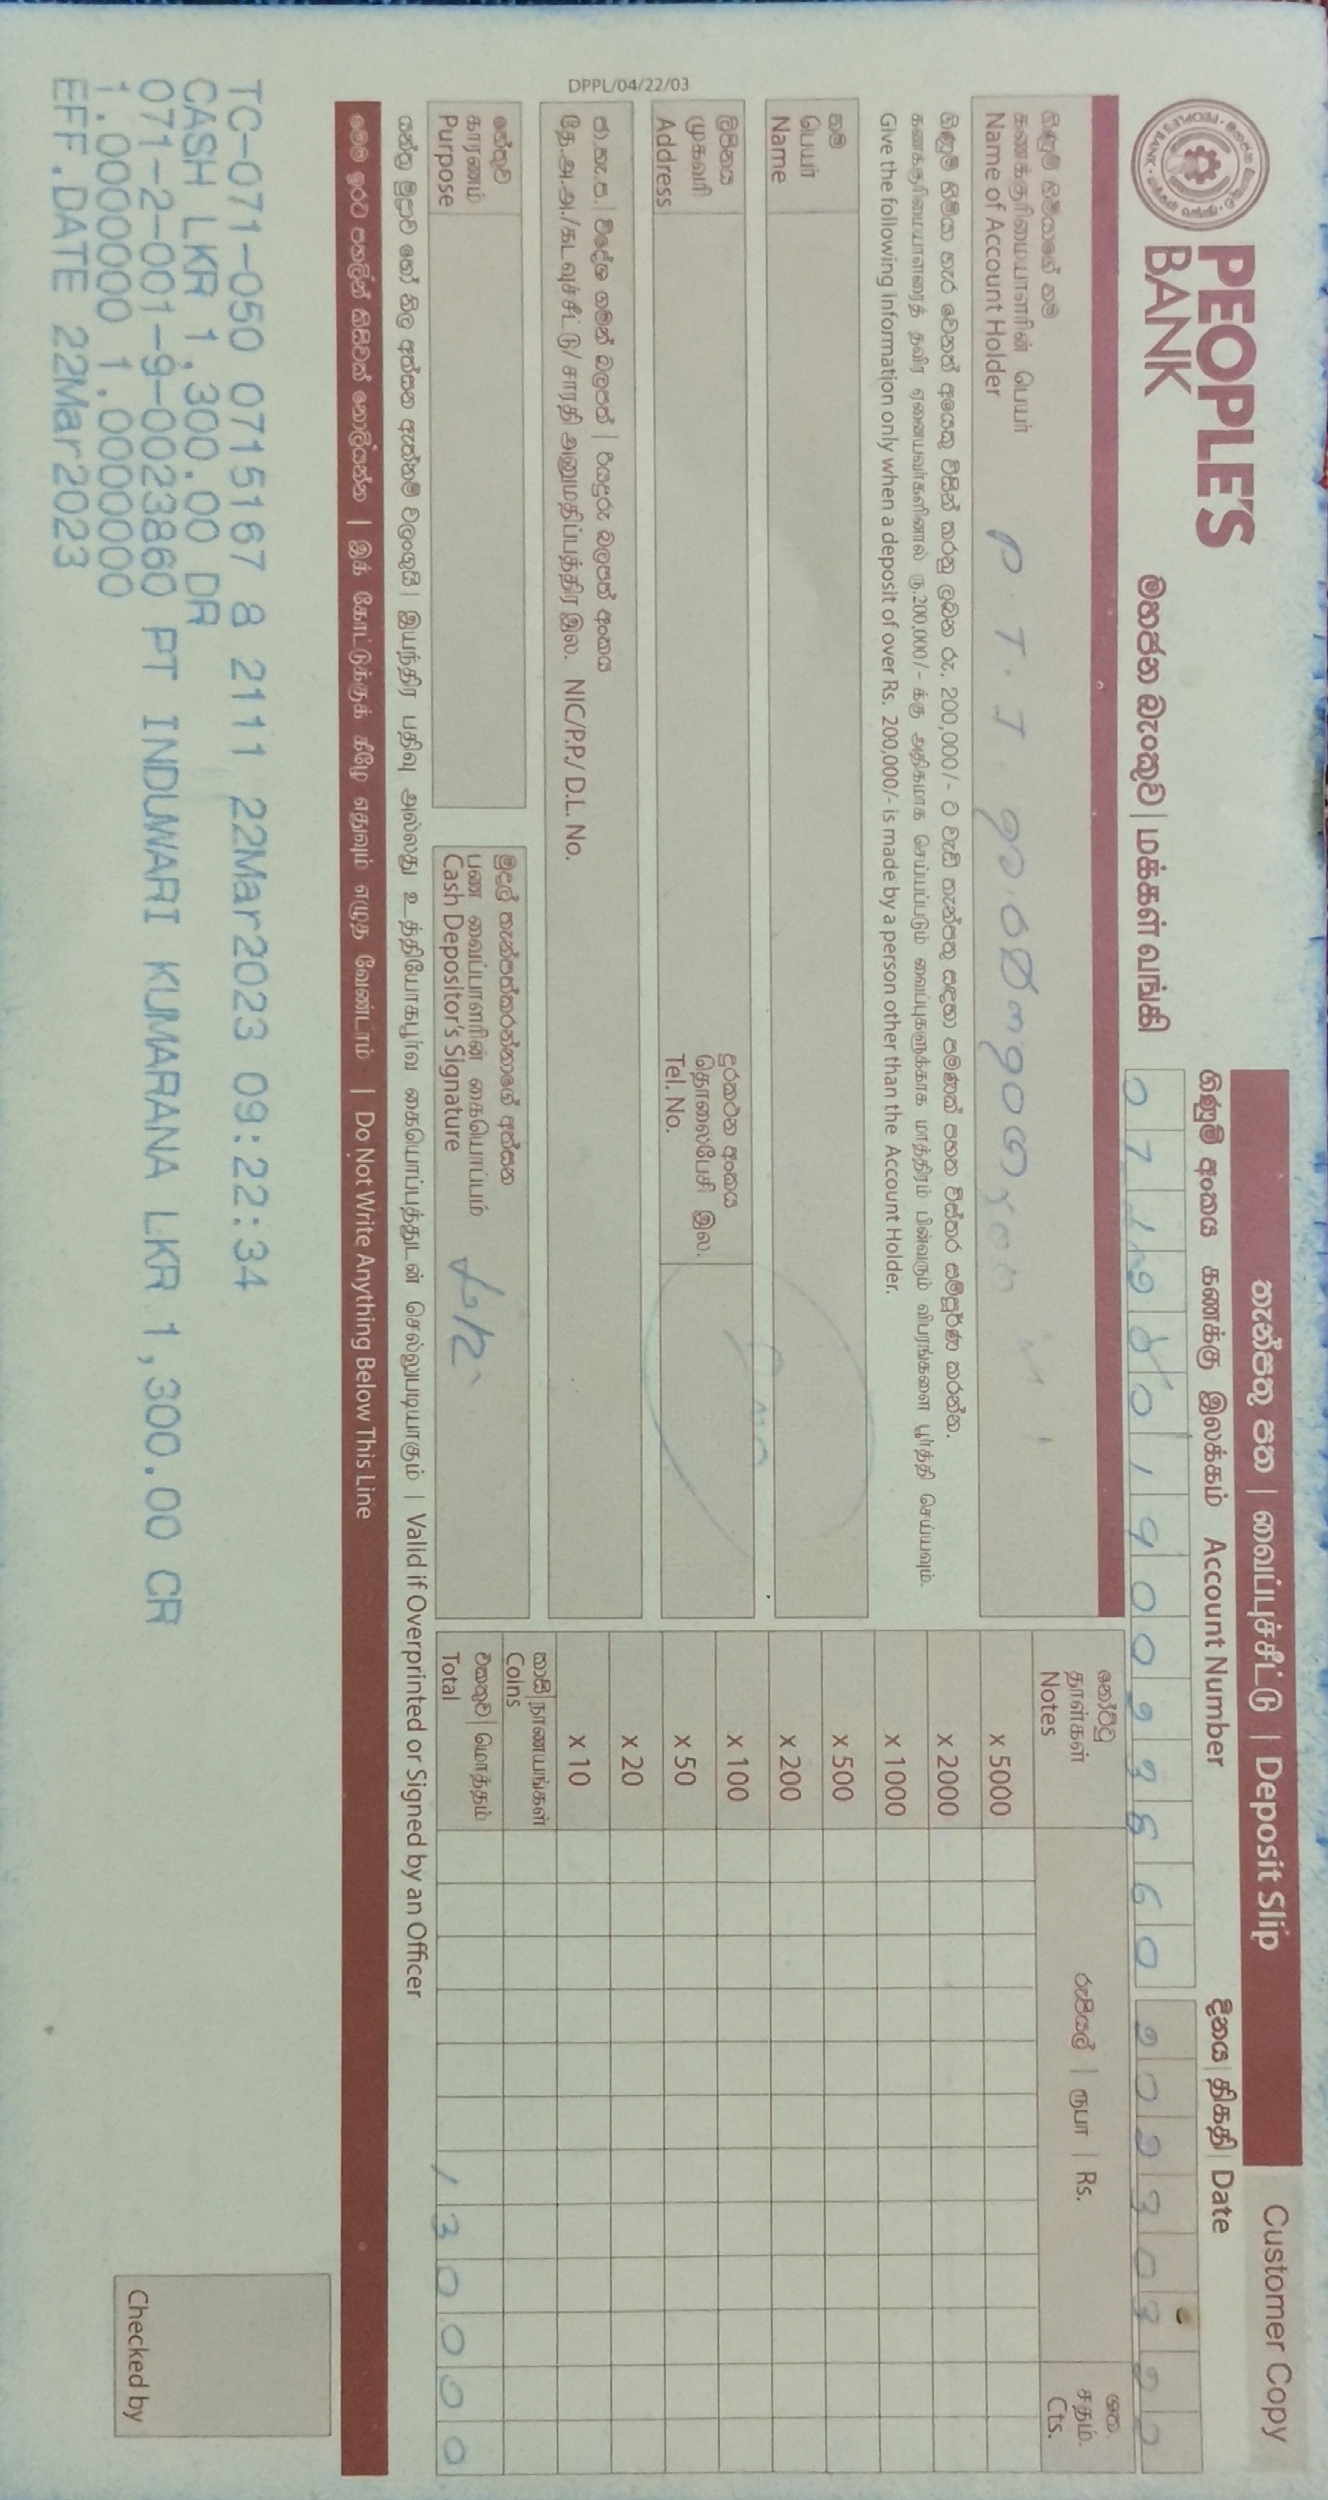 PEOPLE'S
BANK
මහජන බැංකුව | மக்கள் வங்கி
තැන්පතු පත | வைப்புச்சீட்டு | Deposit Slip
Customer Copy
ගිණුම් අංකය கணக்கு இலக்கம் Account Number
දිනය | திகதி | Date
20230322
ගිණුම් හිමියාගේ නම
கணக்குரிமையாளரின் பெயர்
Name of Account Holder
P. T. I.
ගිණුම් හිමියා හැර වෙනත් අයෙකු විසින් කරනු ලබන රු. 200,000/- ට වැඩි තැන්පතු සඳහා පමණක් පහත විස්තර සම්පූර්ණ කරන්න.
கணக்குரிமையாளரைத் தவிர ஏனையவர்களினால் ரு.200,000/- க்கு அதிகமாக செய்யப்படும் வைப்புகளுக்காக மாத்திரம் பின்வரும் விபரங்களை பூர்த்தி செய்யவும்.
Give the following information only when a deposit of over Rs. 200,000/- is made by a person other than the Account Holder.
නම
பெயர்
Name
ලිපිනය
முகவரி
Address
දුරකථන අංකය
தொலைபேசி இல.
Tel. No.
ජා.හැ.ප. | විදේශ ගමන් බලපත් | රියදුරු බලපත් අංකය
தே.அ.அ./கடவுச்சீட்டு/ சாரதி அனுமதிப்பத்திர இல. NIC/P.P./ D.L. No.
හේතුව
காரணம்
Purpose
මුදල් තැන්පත්කරන්නාගේ අත්සන
பண வைப்பாளரின் கையொப்பம்
Cash Depositor's Signature
නෝට්ටු
தாள்கள்
Notes
රුපියල් | ரூபா | Rs.
ශත.
சதம்.
Cts.
x 5000
x 2000
x 1000
x 500
x 200
x 100
x 50
x 20
x 10
කාසි | நாணயங்கள்
Coins
එකතුව | மொத்தம்
Total
130000
DPPL/04/22/03
යන්ත්‍ර මුද්‍රාව හෝ නිල අත්සන ඇත්නම් වලංගුයි | இயந்திர பதிவு அல்லது உத்தியோகபூர்வ கையொப்பத்துடன் செல்லுபடியாகும் | Valid if Overprinted or Signed by an Officer
මෙම ඉරට පහලින් කිසිවක් නොලියන්න | இக் கோட்டுக்குக் கீழே எதுவும் எழுத வேண்டாம் | Do Not Write Anything Below This Line
TC-071-050 0715167 8 2111 22Mar2023 09:22:34
CASH LKR 1,300.00 DR
071-2-001-9-0023860 PT INDUWARI KUMARANA LKR 1,300.00 CR
1.0000000 1.0000000
EFF.DATE 22Mar2023
Checked by